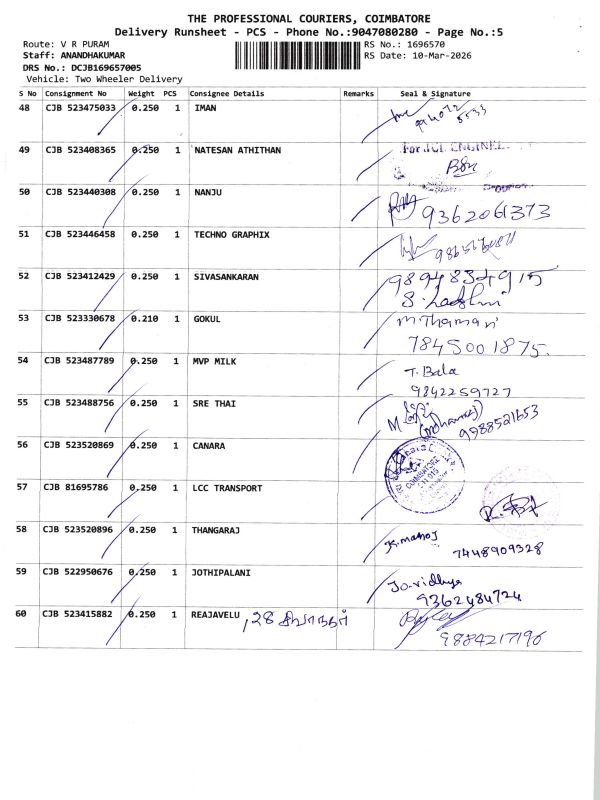 THE PROFESSIONAL COURIERS, COIMBATORE
Delivery Runsheet - PCS - Phone No.:9047080280 - Page No.:5
Route: V R PURAM
RS No.: 1696570
Staff: ANANDHAKUMAR
RS Date: 10-Mar-2026
DRS No.: DCJB169657005
Vehicle: Two Wheeler Delivery
S No Consignment No Weight PCS Consignee Details Remarks Seal & Signature
48 CJB 523475033 0.250 1 IMAN
49 CJB 523408365 0.250 1 NATESAN ATHITHAN For JCL ENGINEE
50 CJB 523440308 0.250 1 NANJU
9362061373
51 CJB 523446458 0.250 1 TECHNO GRAPHIX
52 CJB 523412429 0.250 1 SIVASANKARAN 9894834915
53 CJB 523330678 0.210 1 GOKUL
7845001875.
54 CJB 523487789 0.250 1 MVP MILK T. Bala
9842259727
55 CJB 523488756 0.250 1 SRE THAI
9988521653
56 CJB 523520869 0.250 1 CANARA
COIMBATORE
57 CJB 81695786 0.250 1 LCC TRANSPORT
58 CJB 523520896 0.250 1 THANGARAJ K. manoj
7448909328
59 CJB 522950676 0.250 1 JOTHIPALANI Jo. vidhya
9362484724
60 CJB 523415882 0.250 1 REAJAVELU , 28
9884217196